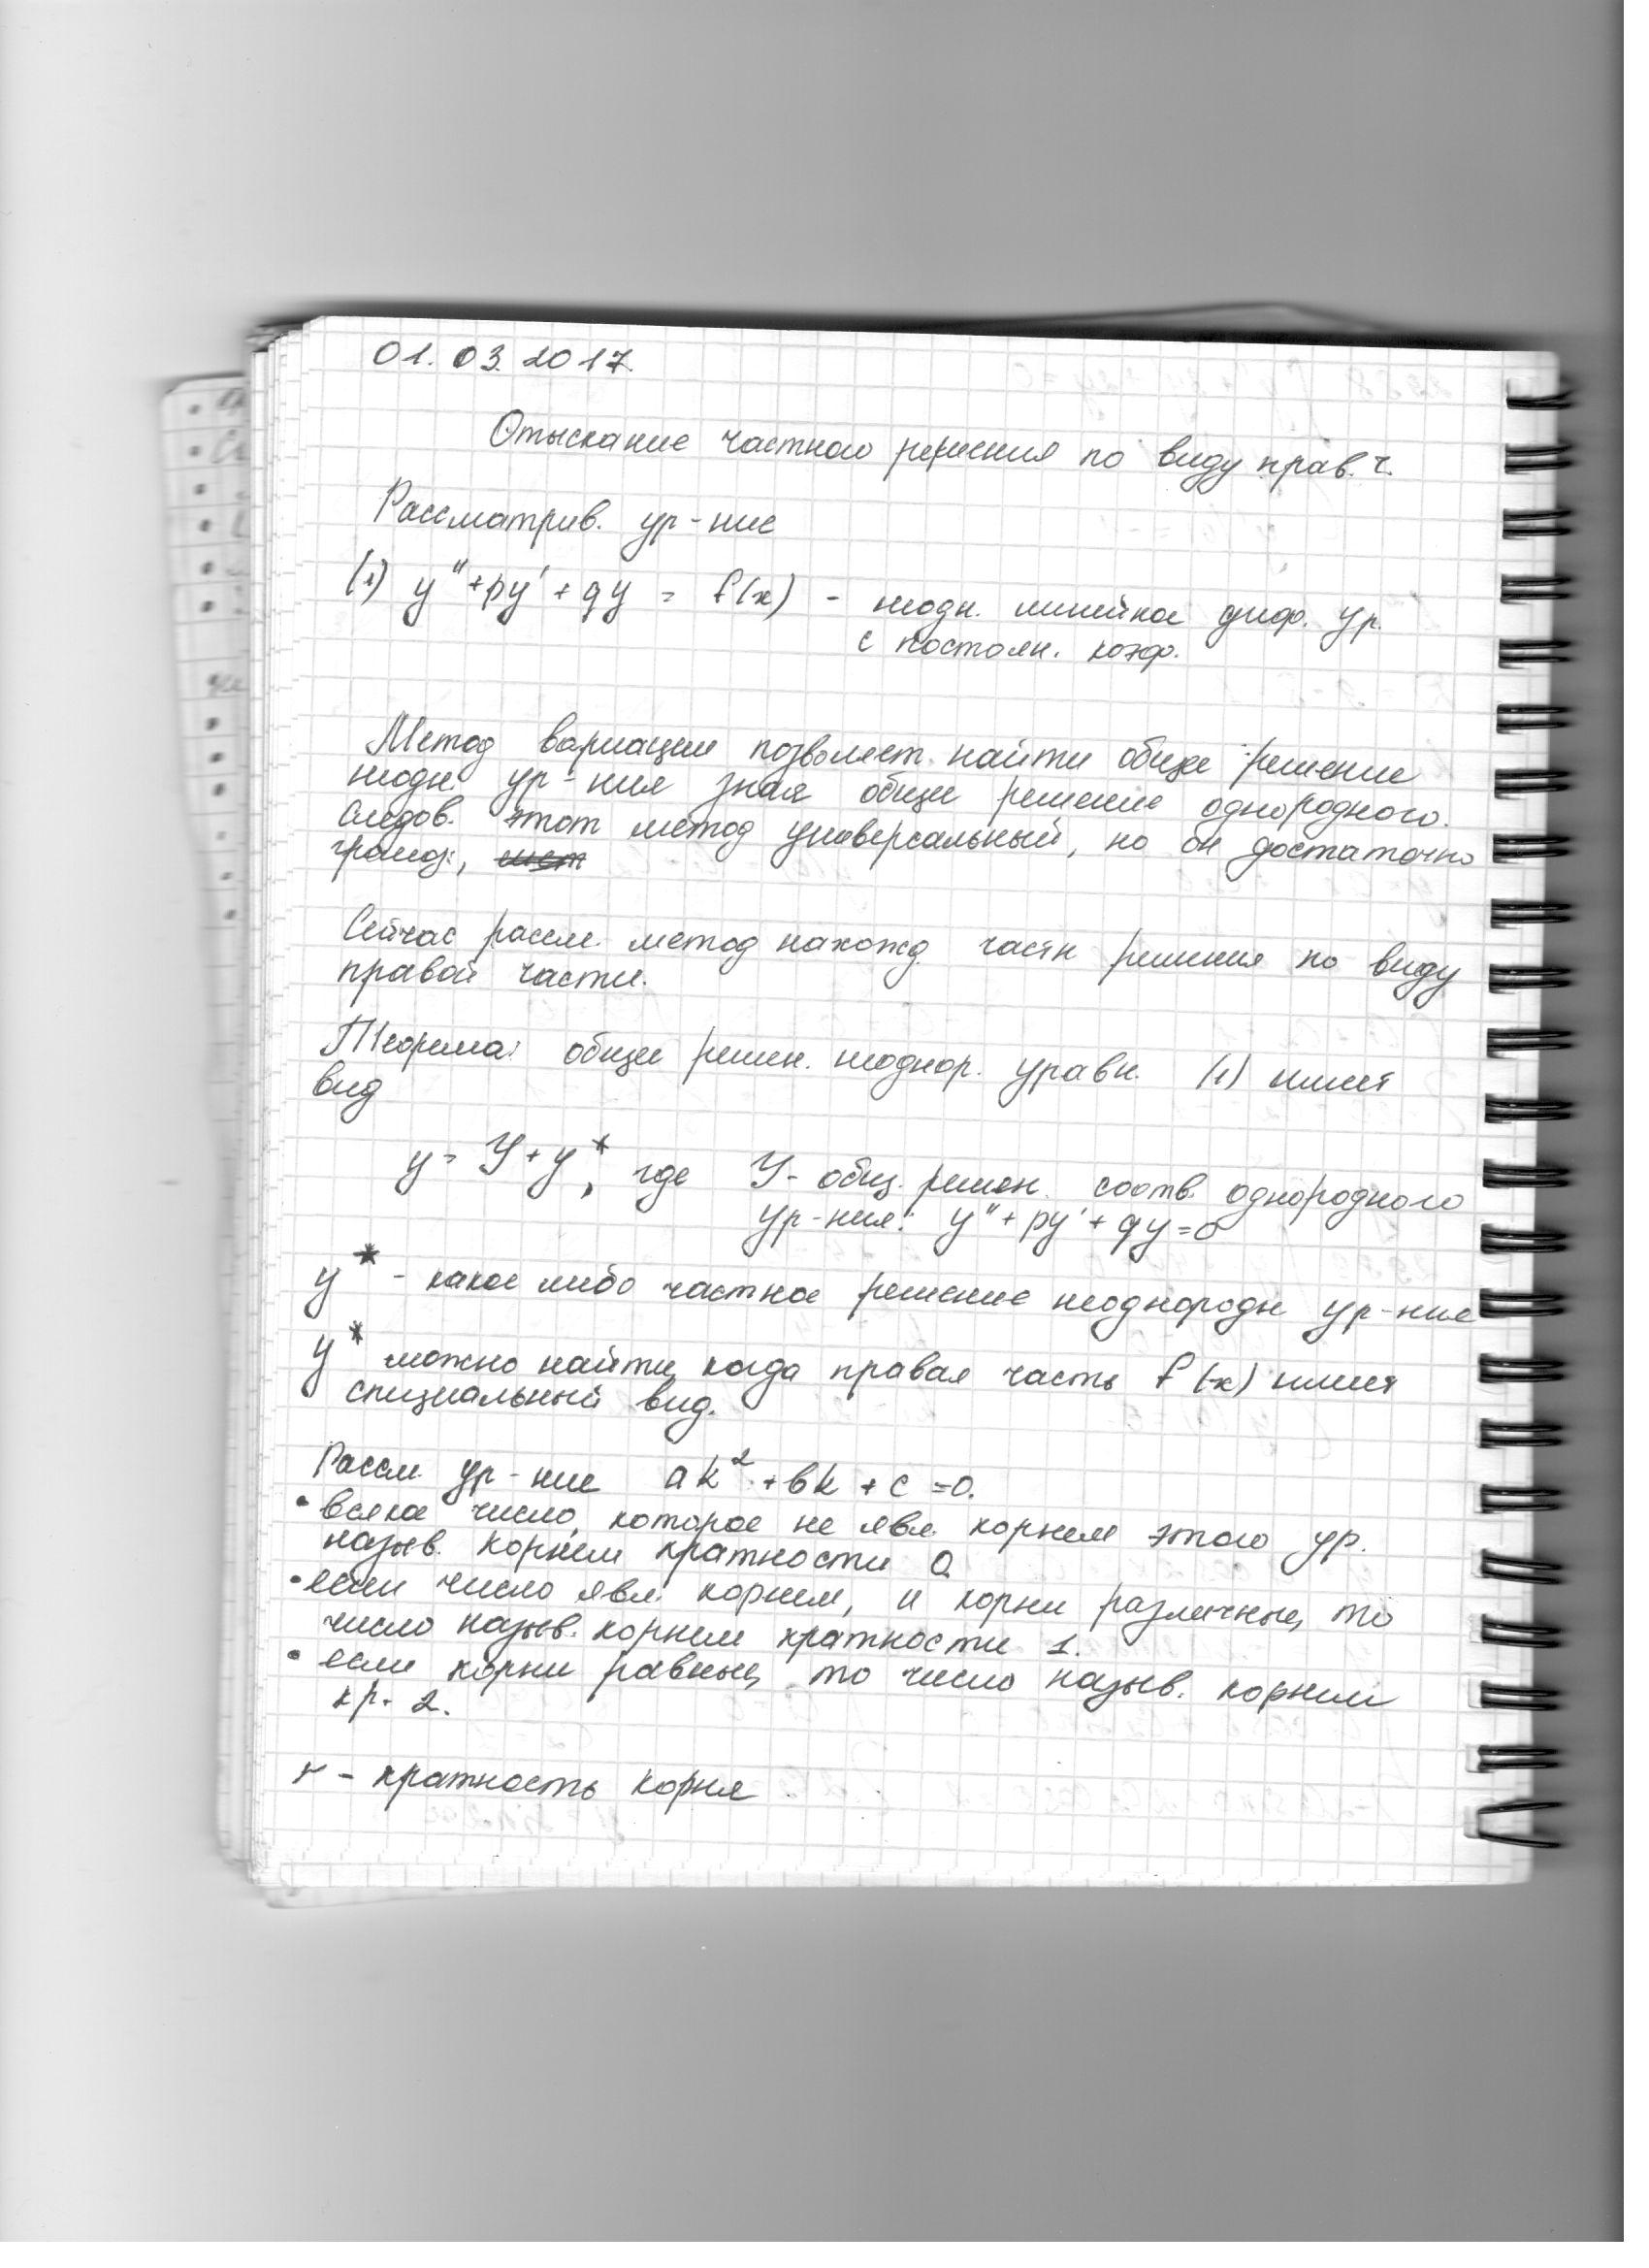 01.03.2017
Отыскание частного решения по виду прав. ч.
Рассматрив. ур-ние
(1) y"+py'+qy = f(x) - неодн. линейное диф. ур.
с постоян. коэф.
Метод вариации позволяет найти общее решение
неодн. ур-ния зная общее решение однородного.
Следов. этот метод универсальный, но он достаточно
громозд.,
Сейчас рассм. метод нахожд. частн решения по виду
правой части.
Теорема: общее решен. неоднор. уравн. (1) имеет
вид
y = Y + y*, где Y - общ. решен. соотв. однородного
ур-ния: y"+py'+qy=0
y* - какое либо частное решение неоднородн ур-ние
y* можно найти, когда правая часть f(x) имеет
специальный вид.
Рассм. ур-ние ak²+bk+c=0.
• всякое число, которое не явл. корнем этого ур.
назыв. корнем кратности 0
• если число явл. корнем, и корни различные, то
число назыв. корнем кратности 1.
• если корни равные, то число назыв. корнем
кр. 2.
r - кратность корня